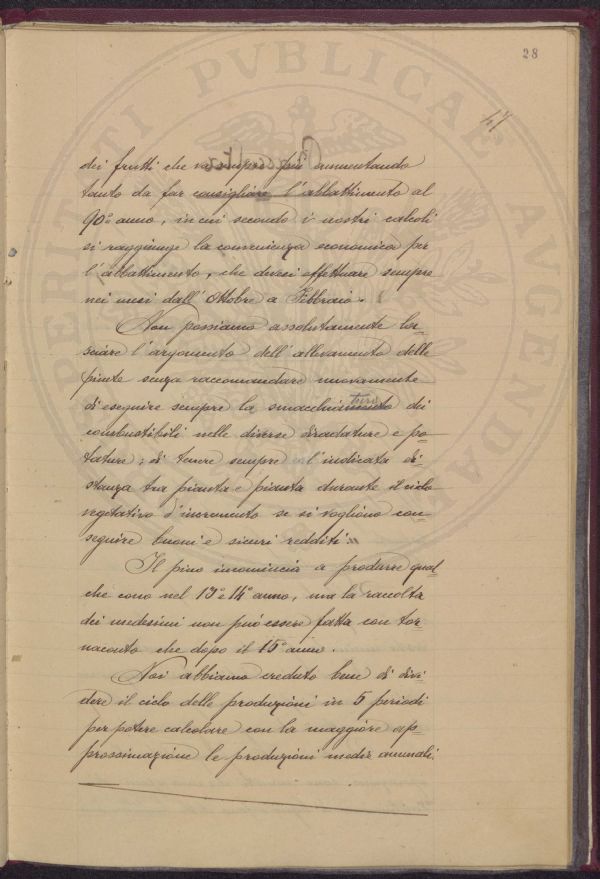 28
47
dei frutti che va sempre più aumentando
tanto da far consigliare l'abbattimento al
90° anno, in cui secondo i nostri calcoli
si raggiunge la convenienza economica per
l'abbattimento, che devesi effettuare sempre
nei mesi dall'Ottobre a Febbraio.
Non possiamo assolutamente la-
sciare l'argomento dell'allevamento delle
piante senza raccomandare nuovamente
di eseguire sempre la smacchia dei
combustibili nelle diverse diradature e po-
tature; di tenere sempre l'indicata di-
stanza tra pianta e pianta durante il ciclo
vegetativo d'incremento se si vogliono con-
seguire buoni e sicuri redditi.
Il pino incomincia a produrre qual-
che cono nel 13° e 14° anno, ma la raccolta
dei medesimi non può essere fatta con tor-
naconto che dopo il 15° anno.
Noi abbiamo creduto bene di divi-
dere il ciclo delle produzioni in 5 periodi
per potere calcolare con la maggiore ap-
prossimazione le produzioni medie annuali.
PVBLICAE
AVGENDAE